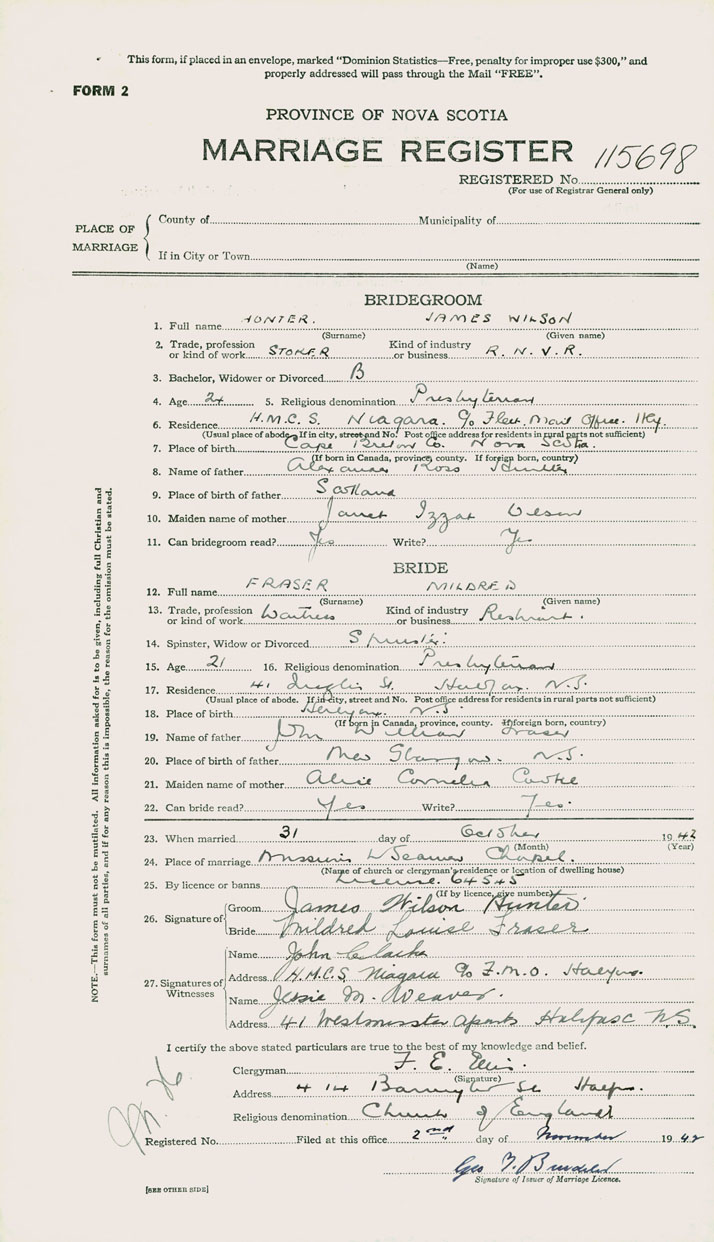 This form, if placed in an envelope, marked "Dominion Statistics—Free, penalty for improper use $300," and
properly addressed will pass through the Mail "FREE".
FORM 2
PROVINCE OF NOVA SCOTIA
MARRIAGE REGISTER 115698
REGISTERED No.
(For use of Registrar General only)
PLACE OF MARRIAGE
County of Municipality of
If in City or Town
(Name)
BRIDEGROOM
1. Full name HUNTER. JAMES WILSON
(Surname) (Given name)
2. Trade, profession or kind of work STOKER Kind of industry or business R.N.V.R.
3. Bachelor, Widower or Divorced B
4. Age 24 5. Religious denomination Presbyterian
6. Residence H.M.C.S. Niagara. c/o Fleet Mail Office. Hfx.
(Usual place of abode. If in city, street and No. Post office address for residents in rural parts not sufficient)
7. Place of birth Cape Breton Co. Nova Scotia.
(If born in Canada, province, county. If foreign born, country)
8. Name of father Alexander Ross Hunter
9. Place of birth of father Scotland
10. Maiden name of mother Janet
11. Can bridegroom read? Yes Write? Yes
BRIDE
12. Full name FRASER MILDRED
(Surname) (Given name)
13. Trade, profession or kind of work Waitress Kind of industry or business
14. Spinster, Widow or Divorced Spinster
15. Age 21 16. Religious denomination Presbyterian
17. Residence 41 Inglis St. Halifax N.S.
(Usual place of abode. If in city, street and No. Post office address for residents in rural parts not sufficient)
18. Place of birth N.S.
(If born in Canada, province, county. If foreign born, country)
19. Name of father John William Fraser
20. Place of birth of father New Glasgow. N.S.
21. Maiden name of mother Alice Cornelia Cooke
22. Can bride read? Yes Write? Yes.
23. When married 31 day of October 1942
(Month) (Year)
24. Place of marriage Missions to Seamen Chapel.
(Name of church or clergyman's residence or location of dwelling house)
25. By licence or banns License. 64545
(If by licence, give number)
26. Signature of
Groom James Wilson Hunter
Bride Mildred Louise Fraser
27. Signatures of Witnesses
Name John Clarke
Address H.M.C.S. Niagara c/o F.M.O. Halifax.
Name Jessie M. Weaver.
Address 41 Westminster Aparts Halifax N.S.
I certify the above stated particulars are true to the best of my knowledge and belief.
Clergyman F. E. Ellis.
(Signature)
Address 414 Barrington St Halifax.
Religious denomination Church of England
Registered No. Filed at this office 2nd day of November 1942
Geo
Signature of Issuer of Marriage Licence.
[SEE OTHER SIDE]
NOTE.—This form must not be mutilated. All information asked for is to be given, including full Christian and
surnames of all parties, and if for any reason this is impossible, the reason for the omission must be stated.